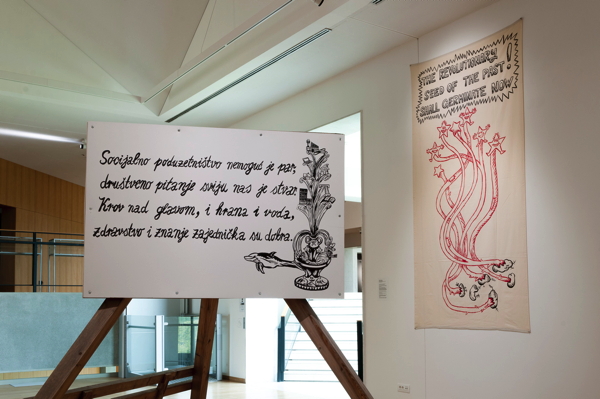 Socijalno poduzetništvo nemoguć je par,
društveno pitanje sviju nas je stvar.
Krov nad glavom, i hrana i voda,
zdravstvo i znanje zajednička su dobra.
THE REVOLUTIONARY
SEED OF THE PAST
SHALL GERMINATE NOW!